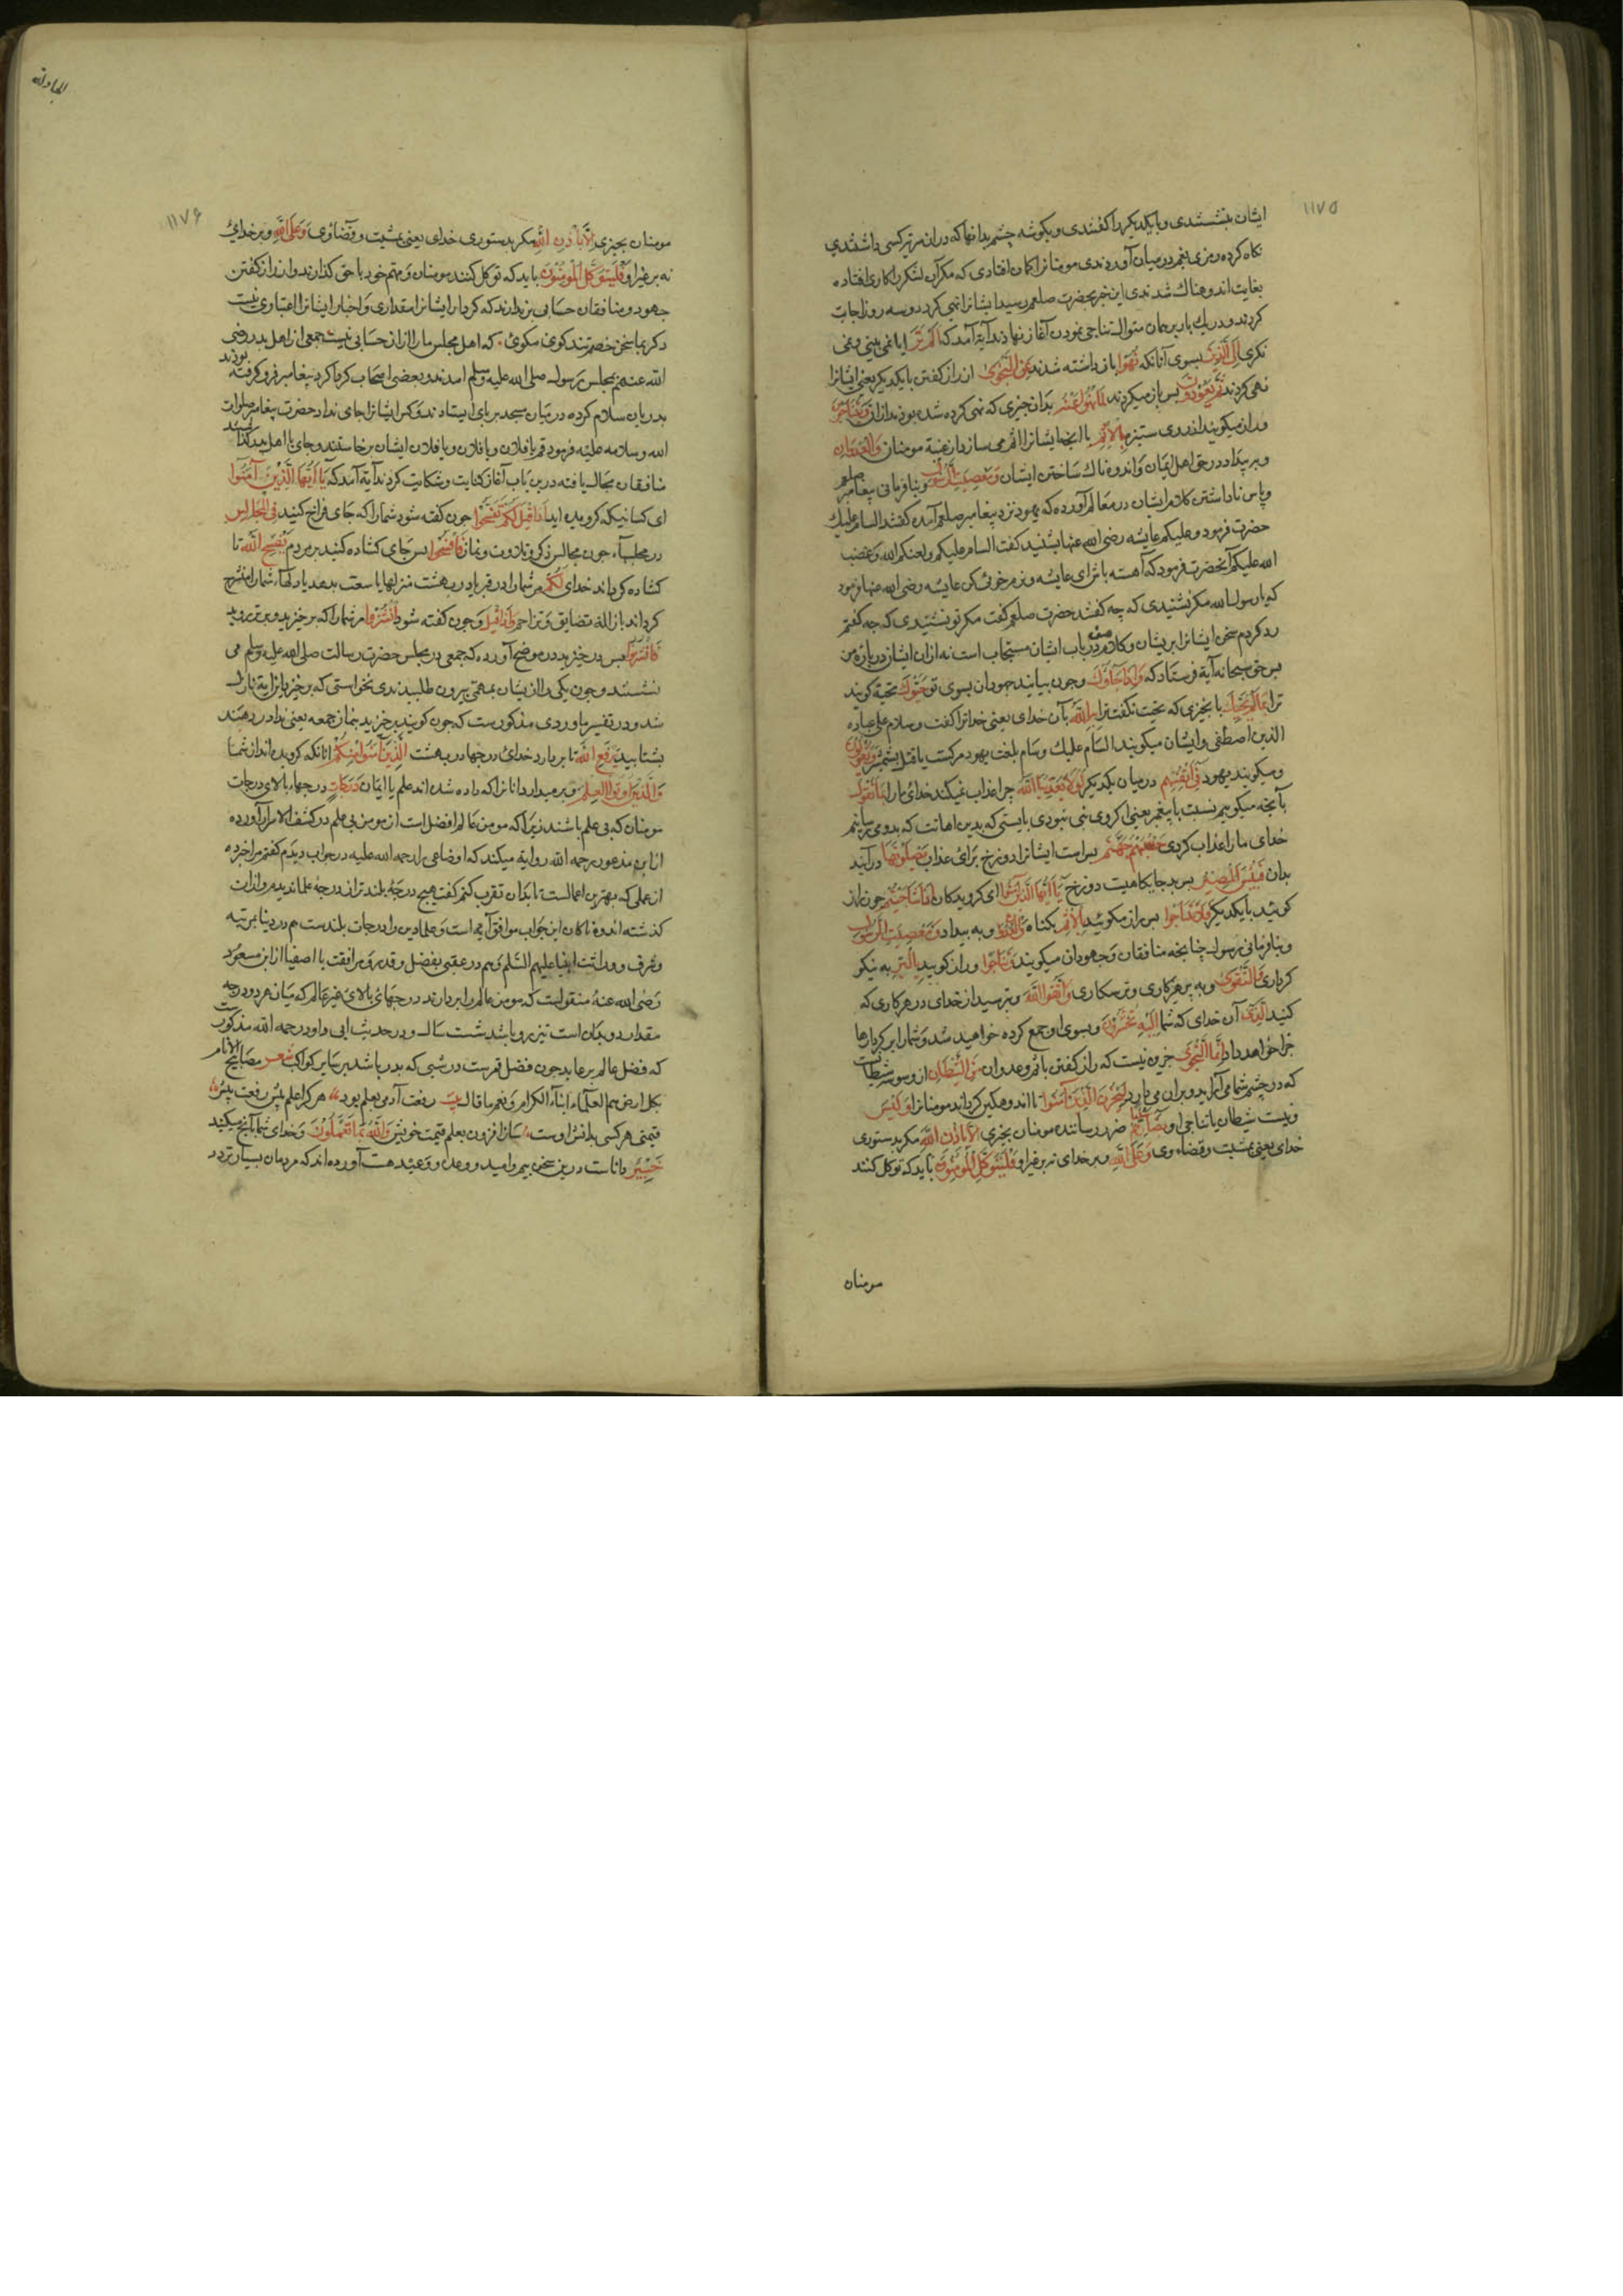 ١١٧٥
ایشان بنشستندی و بایکدیکر راز کفتندی و بکوشه چشم بدانها که در ان سریه کسی داشتندی
نکاه کرده رمزی بغم در میان آوردندی مومنانرا کمان افتادی که مکر آن لشکر را کاری افتاده
بغایت اندوهناک شدندی این خبر بحضرت صلعم رسید ایشانرا نهی کرد دو سه روز اجابت
کردند و دریک بار بر همان منوال تناجی نمودن آغاز نهادند آیة آمد که اَلَمْ تَرَ ایا نمی بینی و نمی
نکری اِلَی الَّذِینَ بسوی آنانکه نُهُوا باز داشته شدند عَنِ النَّجْوٰی از راز کفتن بایکدیکر یعنی ایشانرا
نهی کردند ثُمَّ یَعُودُونَ پس باز میکردند لِمَا نُهُوا عَنْهُ بدان چیزی که نهی کرده شده بودند از ان وَیَتَنَاجَوْنَ
و راز میکویند از روی ستیزه بِالْاِثْمِ با انچه ایشانرا اثم می سازد از غیبة مومنان وَالْعُدْوَانِ
و بر بیداد در حق اهل ایمان و اندوهناک ساختن ایشان وَمَعْصِیَتِ الرَّسُولِ و بنافرمانی پیغامبر صلعم
و پاس ناداشتن کلام ایشان در معالم آورده که یهود نزد پیغامبر صلعم آمده کفتند السام علیک
حضرت فرمود و علیکم عایشه رضی الله عنها بشنید کفت السام علیکم و لعنکم الله و غضب
الله علیکم آنحضرت فرمود که آهسته باش ای عایشه و نرم خوئی کن عایشه رضی الله عنها فرمود
که یا رسول الله مکر نشنیدی که چه کفتند حضرت صلعم کفت مکر تو نشنیدی که چه کفتم
رد کردم سخن ایشانرا بریشان و کلام من در باب ایشان مستجاب است نه از ان ایشان درباره من
پس حق سبحانه آیة فرستاد که وَاِذَا جَاؤُکَ و چون بیایند جهودان بسوی تو حَیَّوْکَ تحیة کویند
ترا بِمَا لَمْ یُحَیِّکَ با بچیزی که تحیت نکفت ترا بِهِ اللّٰهُ بآن خدای یعنی خدا ترا کفت و سلام علی عباده
الذین اصطفی و ایشان میکویند السام علیک و سام بلغت یهود مرکست یا قتل بشمشیر وَیَقُولُونَ
و میکویند یهود فِی اَنْفُسِهِمْ در میان یکدیکر لَوْلَا یُعَذِّبُنَا اللّٰهُ چرا عذاب نمیکند خدای مارا بِمَا نَقُولُ
بآنچه میکویم نسبت با پیغمبر یعنی اکر وی نبی نبودی بایستی که بدین اهانت که بدو می رسانیم
خدای مارا عذاب کردی حَسْبُهُمْ جَهَنَّمُ بس است ایشانرا دوزخ برای عذاب یَصْلَوْنَهَا درآیند
بدان فَبِئْسَ الْمَصِیرُ پس بد جایکاهیست دوزخ یٰۤا اَیُّهَا الَّذِینَ اٰمَنُوا ای کرویدکان اِذَا تَنَاجَیْتُمْ چون راز
کوئید بایکدیکر فَلَا تَتَنَاجَوْا پس راز مکوئید بِالْاِثْمِ بکناه وَالْعُدْوَانِ و به بیداد وَمَعْصِیَتِ الرَّسُولِ
و بنافرمانی رسول چنانچه منافقان و جهودان میکویند وَتَنَاجَوْا و راز کویید بِالْبِرِّ به نیکو
کرداری وَالتَّقْوٰی و به پرهیزکاری و ترسکاری وَاتَّقُوا اللّٰهَ و بترسید از خدای در هر کاری که
کنید الَّذِی آن خدای که شما اِلَیْهِ تُحْشَرُونَ و بسوی او جمع کرده خواهید شد و شمارا بر کردارها
جزا خواهد داد اِنَّمَا النَّجْوٰی جز وه نیست که راز کفتن باثم و عدوان مِنَ الشَّیْطَانِ از وسوسه شیطانست
که در چشم شما می آراید و بر ان می دارد لِیَحْزُنَ الَّذِینَ اٰمَنُوا تا اندوهکین کرداند مومنانرا وَلَیْسَ
و نیست شیطان یا تناجی او بِضَارِّهِمْ شَیْئًا ضرر رساننده مومنان بچیزی اِلَّا بِاِذْنِ اللّٰهِ مکر بدستوری
خدای یعنی بمشیت و قضاء وی وَعَلَی اللّٰهِ و بر خدای نه بر غیر او فَلْیَتَوَکَّلِ الْمُؤْمِنُونَ باید که توکل کنند
مومنان
المجادلة
١١٧۶
مومنان بچیزی اِلَّا بِاِذْنِ اللّٰهِ مکر بدستوری خدای یعنی بمشیت و قضاوی وَعَلَی اللّٰهِ و بر خدای
نه بر غیر او فَلْیَتَوَکَّلِ الْمُؤْمِنُونَ باید که توکل کنند مومنان و مهم خود با حق کذارند و از راز کفتن
جهود و منافقان حسابی برندارند که کردار ایشانرا مقداری و اخبار ایشانرا اعتباری نیست
دکر بما سخن خصم تند کوی مکوی که اهل مجلس مارا از ان حسابی نیست جمعی از اهل بدر رضی
الله عنهم بمجلس رسول صلی الله علیه وسلم امدند و بعضی اصحاب کرداکرد پیغامبر فرو کرفته بودند
بدریان سلام کرده در میان مسجد بر پای ایستادند و کس ایشانرا جای نداد حضرت پیغامبر صلوات
الله و سلامه علیه فرمود قم یا فلان و یا فلان و یا فلان ایشان برخاستند و جای با اهل بدر کذاشتند
منافقان مجال یافته درین باب آغاز کنایت و شکایت کردند آیة آمد که یٰۤا اَیُّهَا الَّذِینَ اٰمَنُوا
ای کسانیکه کرویده اید اِذَا قِیلَ لَکُمْ تَفَسَّحُوا چون کفته شود شمارا که جای فراخ کنید فِی الْمَجَالِسِ
در مجلسها چون مجالس ذکر و تلاوت و نماز فَافْسَحُوا پس جای کشاده کنید بر مردم یَفْسَحِ اللّٰهُ تا
کشاده کرداند خدای لَکُمْ مر شمارا در قبر یا در بهشت منزلها یا سعت بدهد یا دلهاء شمارا منشرح
کرداند بازالة تضایق و تزاحم وَاِذَا قِیلَ و چون کفته شود انْشُزُوا مر شمارا که برخیزید و برتر روید
فَانْشُزُوا پس برخیزید در موضح آورده که جمعی در مجلس حضرت رسالت صلی الله علیه وسلم می
نشستند و چون یکی را از یشان بمهمی بیرون طلبیدندی نخواستی که برخیزد این آیة نازل
شد و در تفسیر ماوردی مذکورست که چون کویند برخیزید بنماز جمعه یعنی ندا در دهند
بشتابید یَرْفَعِ اللّٰهُ تا بردارد خدای درجها در بهشت الَّذِینَ اٰمَنُوا مِنْکُمْ انانکه کرویده اند از شما
وَالَّذِینَ اُوتُوا الْعِلْمَ و برمیدارد انانرا که داده شده اند علم با ایمان دَرَجَاتٍ درجهاء بالای درجات
مومنان که بی علم باشند زیرا که مومن عالم افضل است از مومن بی علم در کشف الاسرار آورده
از ابن مذعور رحمه الله روایة میکند که اوضاعی را رحمه الله علیه در خواب دیدم کفتم مرا خبر ده
از عملی که بهترین اعمالست تا بدان تقرب کنم کفت هیچ درجهٔ بلندتر از درجهٔ علما ندیدم و از ان
کذشته اندوه ناکان این جواب موافق آیه است و علماء دین را درجات بلندست هم در دنیا بمرتبه
و شرف و وراثت انبیا علیهم السلم و هم در عقبی بفضل و قدر و مرافقت با اصفیا از ابن مسعود
رضی الله عنه منقولست که مومن عالم را بردارند درجهای بالای غیر عالم که میان هر دو درجه
مقدار دویدن است تیز رو باشد شست سال و در حدیث ابی داود رحمه الله مذکورست
که فضل عالم بر عابد چون فضل قمرست در شبی که بدر باشد بر سایر کواکب شعر مصابیح الانام
بکل ارض هم العلماء ابناء الکرام و نعم ما قال بیت رفعت آدمی بعلم بود هر کرا علم بیش رفعت بیش
قیمتی هر کسی بدانش اوست ساز افزون بعلم قیمت خویش وَاللّٰهُ بِمَا تَعْمَلُونَ و خدای شما بآنچ میکنید
خَبِیرٌ داناست درین سخن بیم و امید و وعده و وعید هست آورده اند که مردمان بسیار تردد